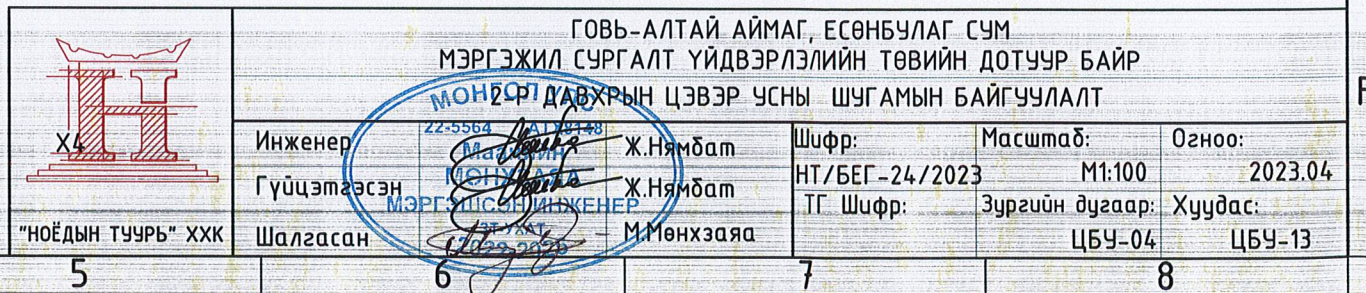 ГОВЬ-АЛТАЙ АЙМАГ, ЕСӨНБУЛАГ СУМ
МЭРГЭЖИЛ СУРГАЛТ ҮЙДВЭРЛЭЛИЙН ТӨВИЙН ДОТУУР БАЙР
2-Р ДАВХРЫН ЦЭВЭР УСНЫ ШУГАМЫН БАЙГУУЛАЛТ
Х4
"НОЁДЫН ТУУРЬ" ХХК
Инженер Ж.Нямбат
Гүйцэтгэсэн Ж.Нямбат
Шалгасан М.Мөнхзаяа
МОНГОЛ
22-5564
МӨНХЗАЯА
МЭРГЭШСЭН ИНЖЕНЕР
Шифр: Масштаб: Огноо:
НТ/БЕГ-24/2023 М1:100 2023.04
ТГ Шифр: Зургийн дугаар: Хуудас:
ЦБУ-04 ЦБУ-13
5 6 7 8